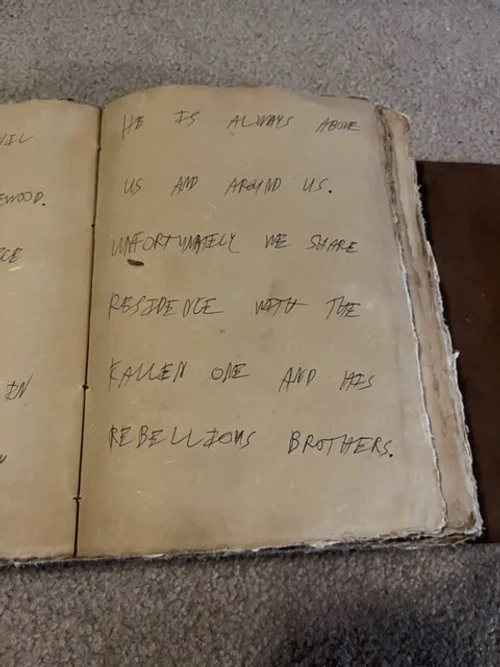 HE IS ALWAYS ABOVE
US AND AROUND US.
UNFORTUNATELY WE SHARE
RESIDENCE WITH THE
FALLEN ONE AND HIS
REBELLIOUS BROTHERS.
EWOOD.
IN